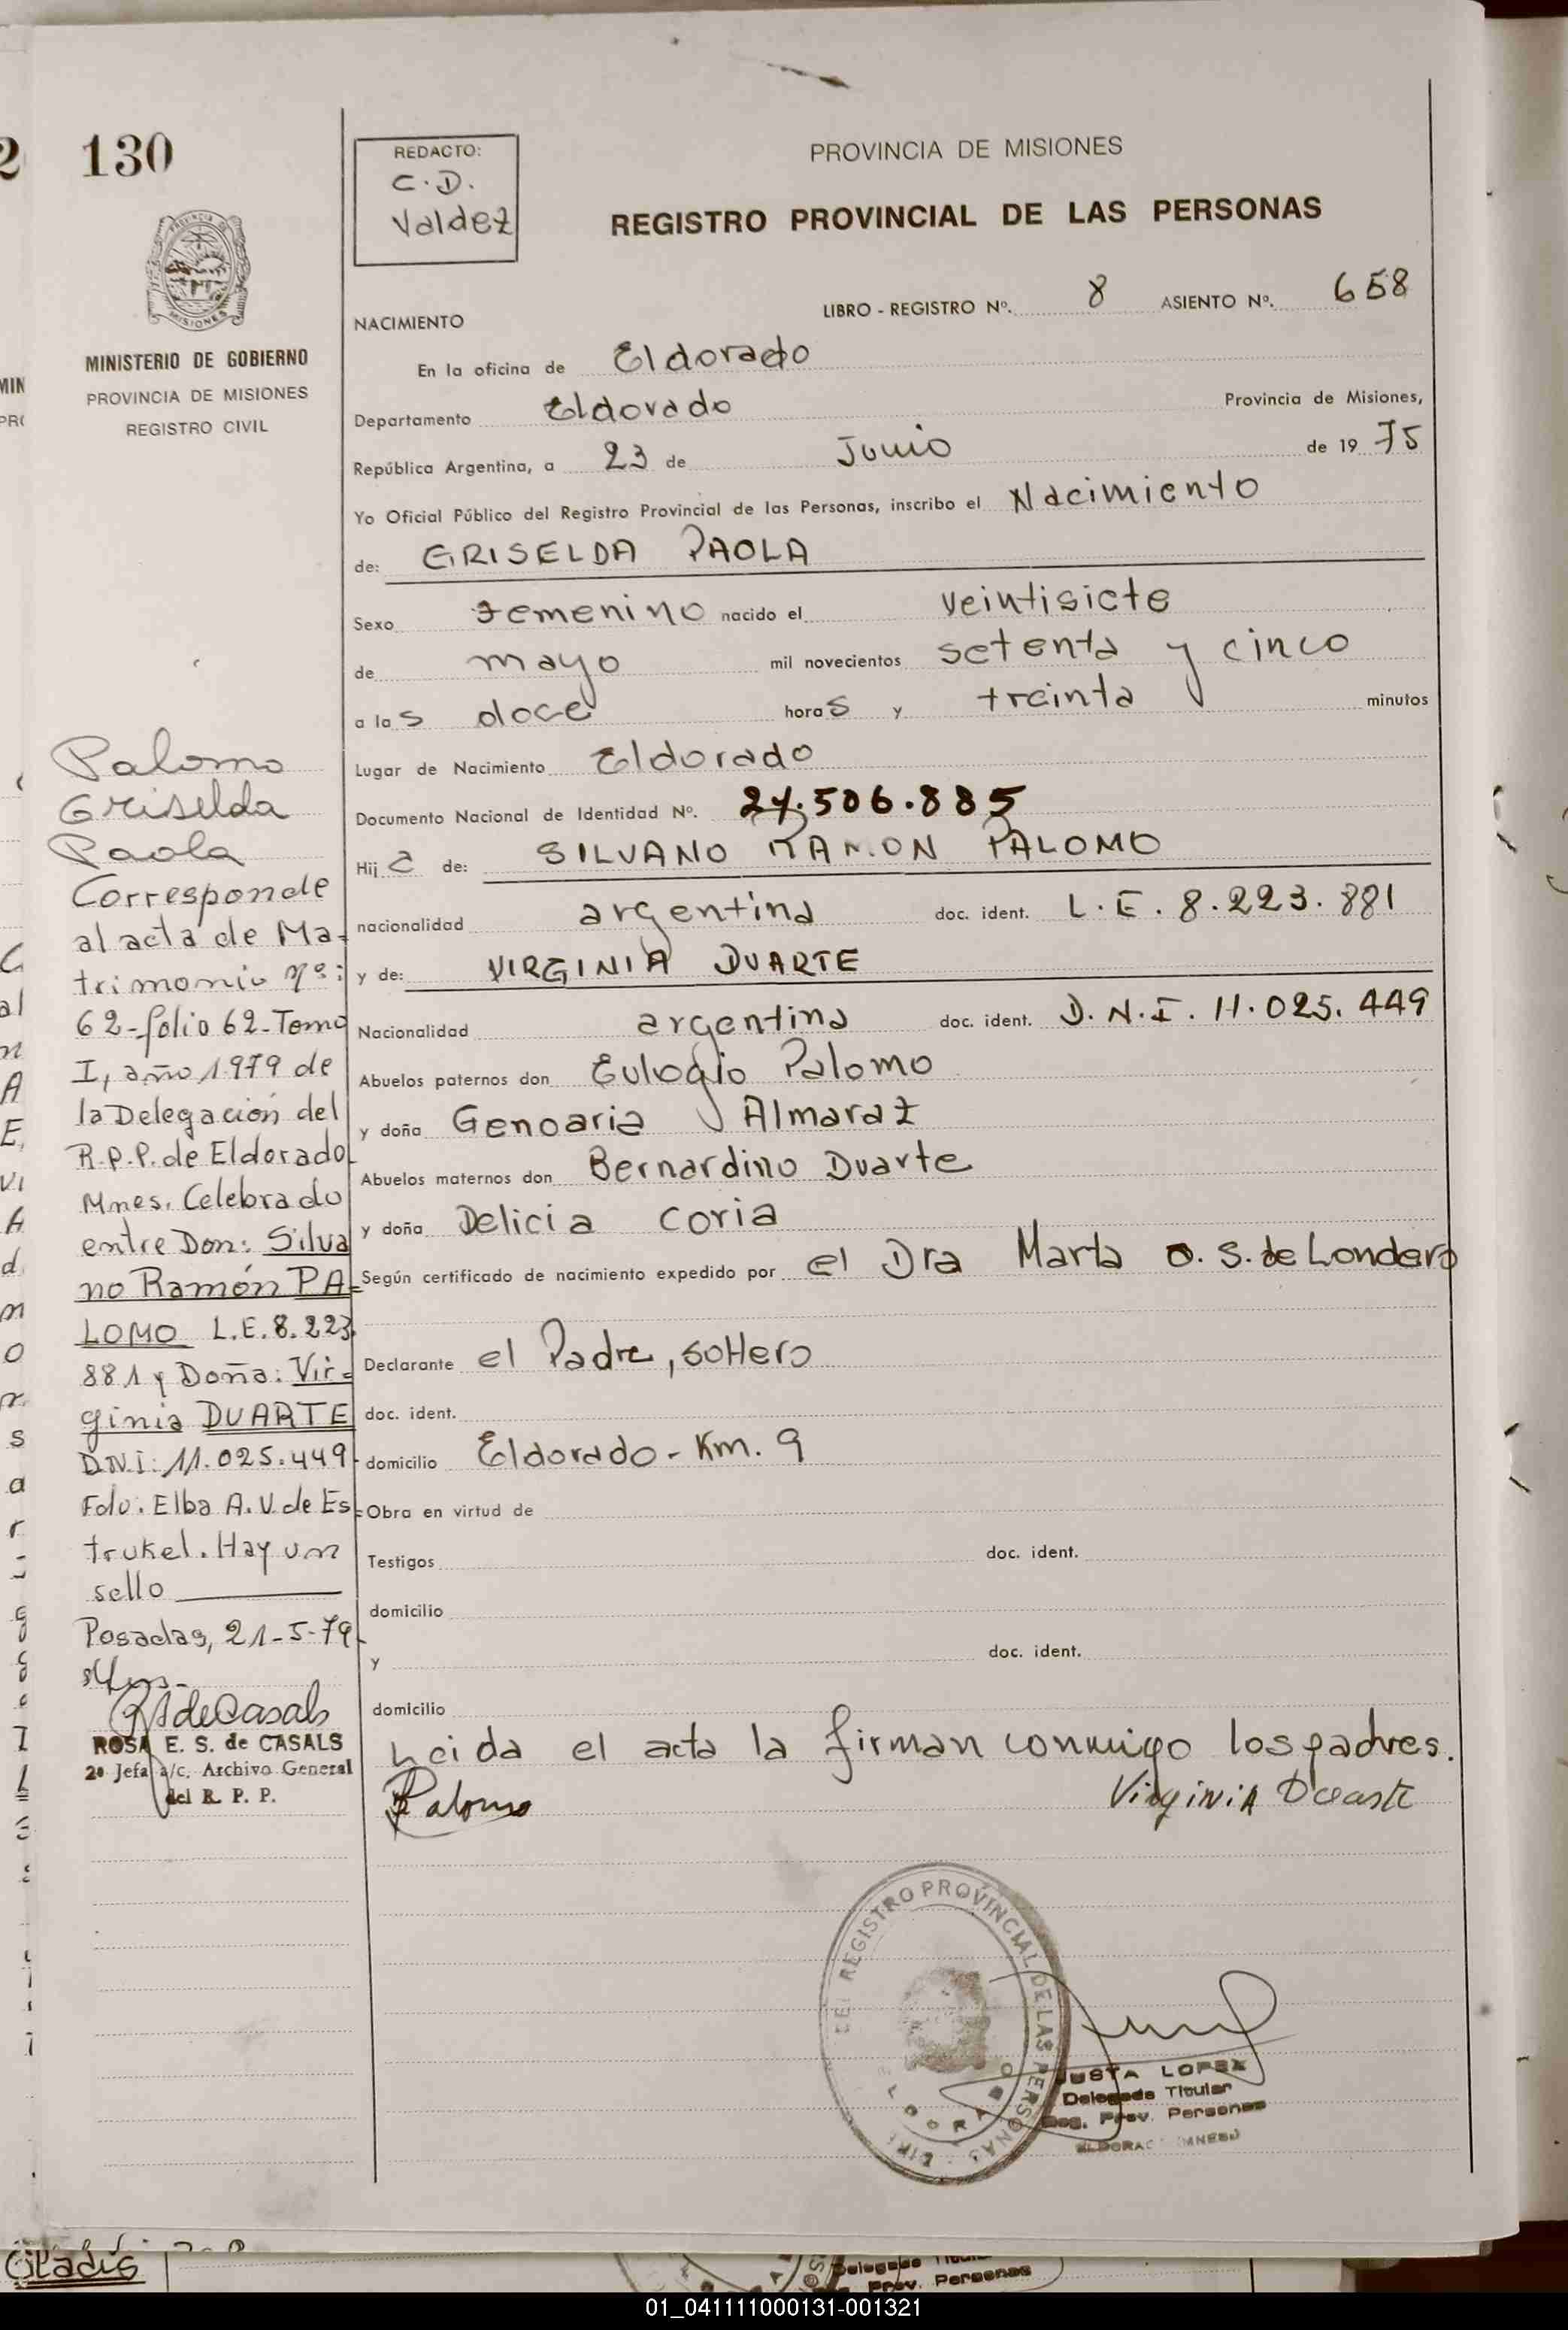 130
MINISTERIO DE GOBIERNO
PROVINCIA DE MISIONES
REGISTRO CIVIL
Palomo
Griselda
Paola
Corresponde
al acta de Ma-
trimonio nº:
62-folio 62-Tomo
I, año 1979 de
la Delegación del
R.P.P. de Eldorado
Mnes. Celebrado
entre Don: Silva
no Ramón PA-
LOMO L.E. 8.223.
881 y Doña: Vir-
ginia DUARTE
D.N.I: 11.025.449-
Fdo: Elba A. V. de Es-
trukel. Hay un
sello
Posadas, 21-5-79
ROSA E. S. de CASALS
2ª Jefa a/c. Archivo General
del R. P. P.
REDACTO:
C. D.
Valdez
PROVINCIA DE MISIONES
REGISTRO PROVINCIAL DE LAS PERSONAS
LIBRO - REGISTRO Nº. 8 ASIENTO Nº. 658
NACIMIENTO
En la oficina de Eldorado
Departamento Eldorado Provincia de Misiones,
República Argentina, a 23 de Junio de 19 75
Yo Oficial Público del Registro Provincial de las Personas, inscribo el Nacimiento
de: GRISELDA PAOLA
Sexo Femenino nacido el veintisiete
de mayo mil novecientos setenta y cinco
a las doce horas y treinta minutos
Lugar de Nacimiento Eldorado
Documento Nacional de Identidad Nº. 24.506.885
Hija de: SILVANO RAMON PALOMO
nacionalidad argentina doc. ident. L.E. 8.223.881
y de: VIRGINIA DUARTE
Nacionalidad argentina doc. ident. D.N.I. 11.025.449
Abuelos paternos don Eulogio Palomo
y doña Genoaria Almaraz
Abuelos maternos don Bernardino Duarte
y doña Delicia Coria
Según certificado de nacimiento expedido por el Dra Marta O. S. de Londero
Declarante el Padre, soltero
doc. ident.
domicilio Eldorado - Km. 9
Obra en virtud de
Testigos doc. ident.
domicilio
y doc. ident.
domicilio
Leida el acta la firman conmigo los padres.
Palomo Virginia Duarte
REGISTRO PROVINCIAL DE LAS PERSONAS
ELDORADO
JUSTA LOPEZ
Delegada Titular
Reg. Prov. Personas
ELDORADO (MNES.)
Citadis
Delegada
Prov. Personas
01_041111000131-001321